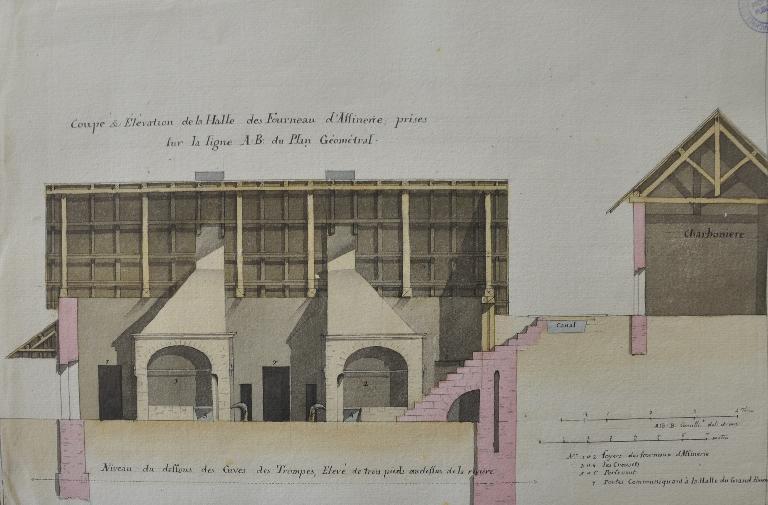 Coupe & Elévation de la Halle des Fourneau d'Affinerie, prises
sur la ligne A B. du Plan Géométral.
Charboniere
Canal
7
7
1
2
Niveau du dessus des Cuves des Trompes, Elevé de trois pieds au dessus de la riviere
N.os 1 et 2 foyers des fourneaux d'Affinerie
les Creusets
7 Portes Communiquant à la Halle du Grand